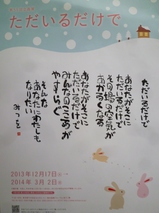 ただいるだけで
ただいるだけで
あなたがそこに
ただいるだけで
その場の空気が
あかるくなる
あなたがそこに
ただいるだけで
みんなのこころが
やすらぐ
そんな
あなたにわたしも
なりたい
みつを
2013年12月17日
2014年 3月 2日